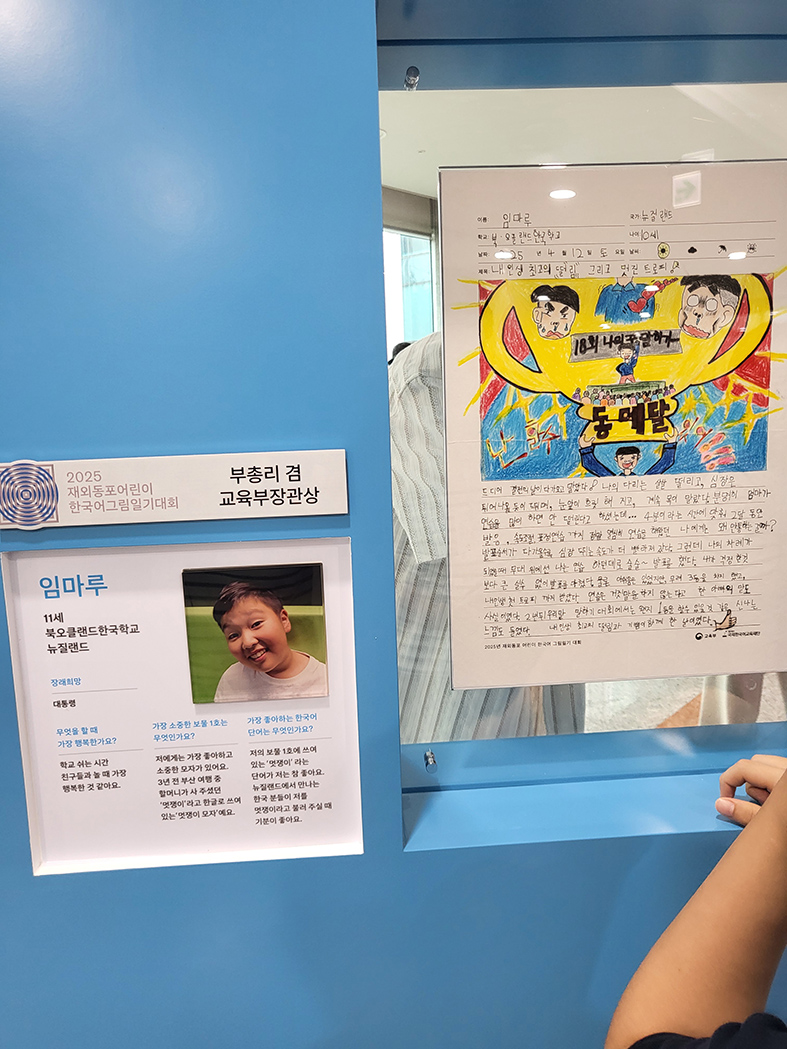 2025
재외동포어린이
한국어그림일기대회
부총리 겸
교육부장관상
임마루
11세
북오클랜드한국학교
뉴질랜드
장래희망
대통령
무엇을 할 때
가장 행복한가요?
학교 쉬는 시간
친구들과 놀 때 가장
행복한 것 같아요.
가장 소중한 보물 1호는
무엇인가요?
저에게는 가장 좋아하고
소중한 모자가 있어요.
3년 전 부산 여행 중
할머니가 사 주셨던
'멋쟁이'라고 한글로 쓰여
있는 '멋쟁이 모자'예요.
가장 좋아하는 한국어
단어는 무엇인가요?
저의 보물 1호에 쓰여
있는 '멋쟁이' 라는
단어가 저는 참 좋아요.
뉴질랜드에서 만나는
한국 분들이 저를
멋쟁이라고 불러 주실 때
기분이 좋아요.
이름: 임마루 국가: 뉴질랜드
학교: 북오클랜드한국학교 나이: 10세
날짜: 25 년 4 월 12 일 토 요일 날씨:
제목: 내 인생 최고의 "떨림" 그리고 멋진 트로피
18회 나의 꿈 말하기
동메달
드디어 결전의 날이 다가오고 말았다 나의 다리는 떨리고, 심장은
튀어나올 듯이 뛰며, 눈앞이 흐릿해 지고, 계속 목이 말랐다. 분명히 엄마가
연습을 많이 하면 안 떨린다고 하셨는데... 4분이라는 시간에 맞춰 2달 동안
발음, 속도, 표정연습 까지 정말 열심히 연습을 했는데 나에게는 왜
발표순서가 다가올수록, 심장 뛰는 속도가 더 빨라져 갔다. 그런데 나의 차례가
되었을때 무대 위에선 나는 연습 하던대로 술술~ 발표를 했다. 내가 걱정 했던 것
보다 큰 실수 없이 발표를 마쳤다. 물론 아쉬움은 있었지만, 무려 3등을 차지 했고,
내인생 첫 트로피 까지 받았다. 연습은 거짓말을 하지 않는다고 한 아빠의 말은
사실 이였다. 2년뒤 우리말 말하기 대회에서는 왠지 1등을 할수 있을것 같은 신나는
느낌도 들었다. 내인생 최고의 떨림과 기쁨이 함께 한 날이였다.
2025년 재외동포 어린이 한국어 그림일기 대회
교육부
재외한국어교육재단